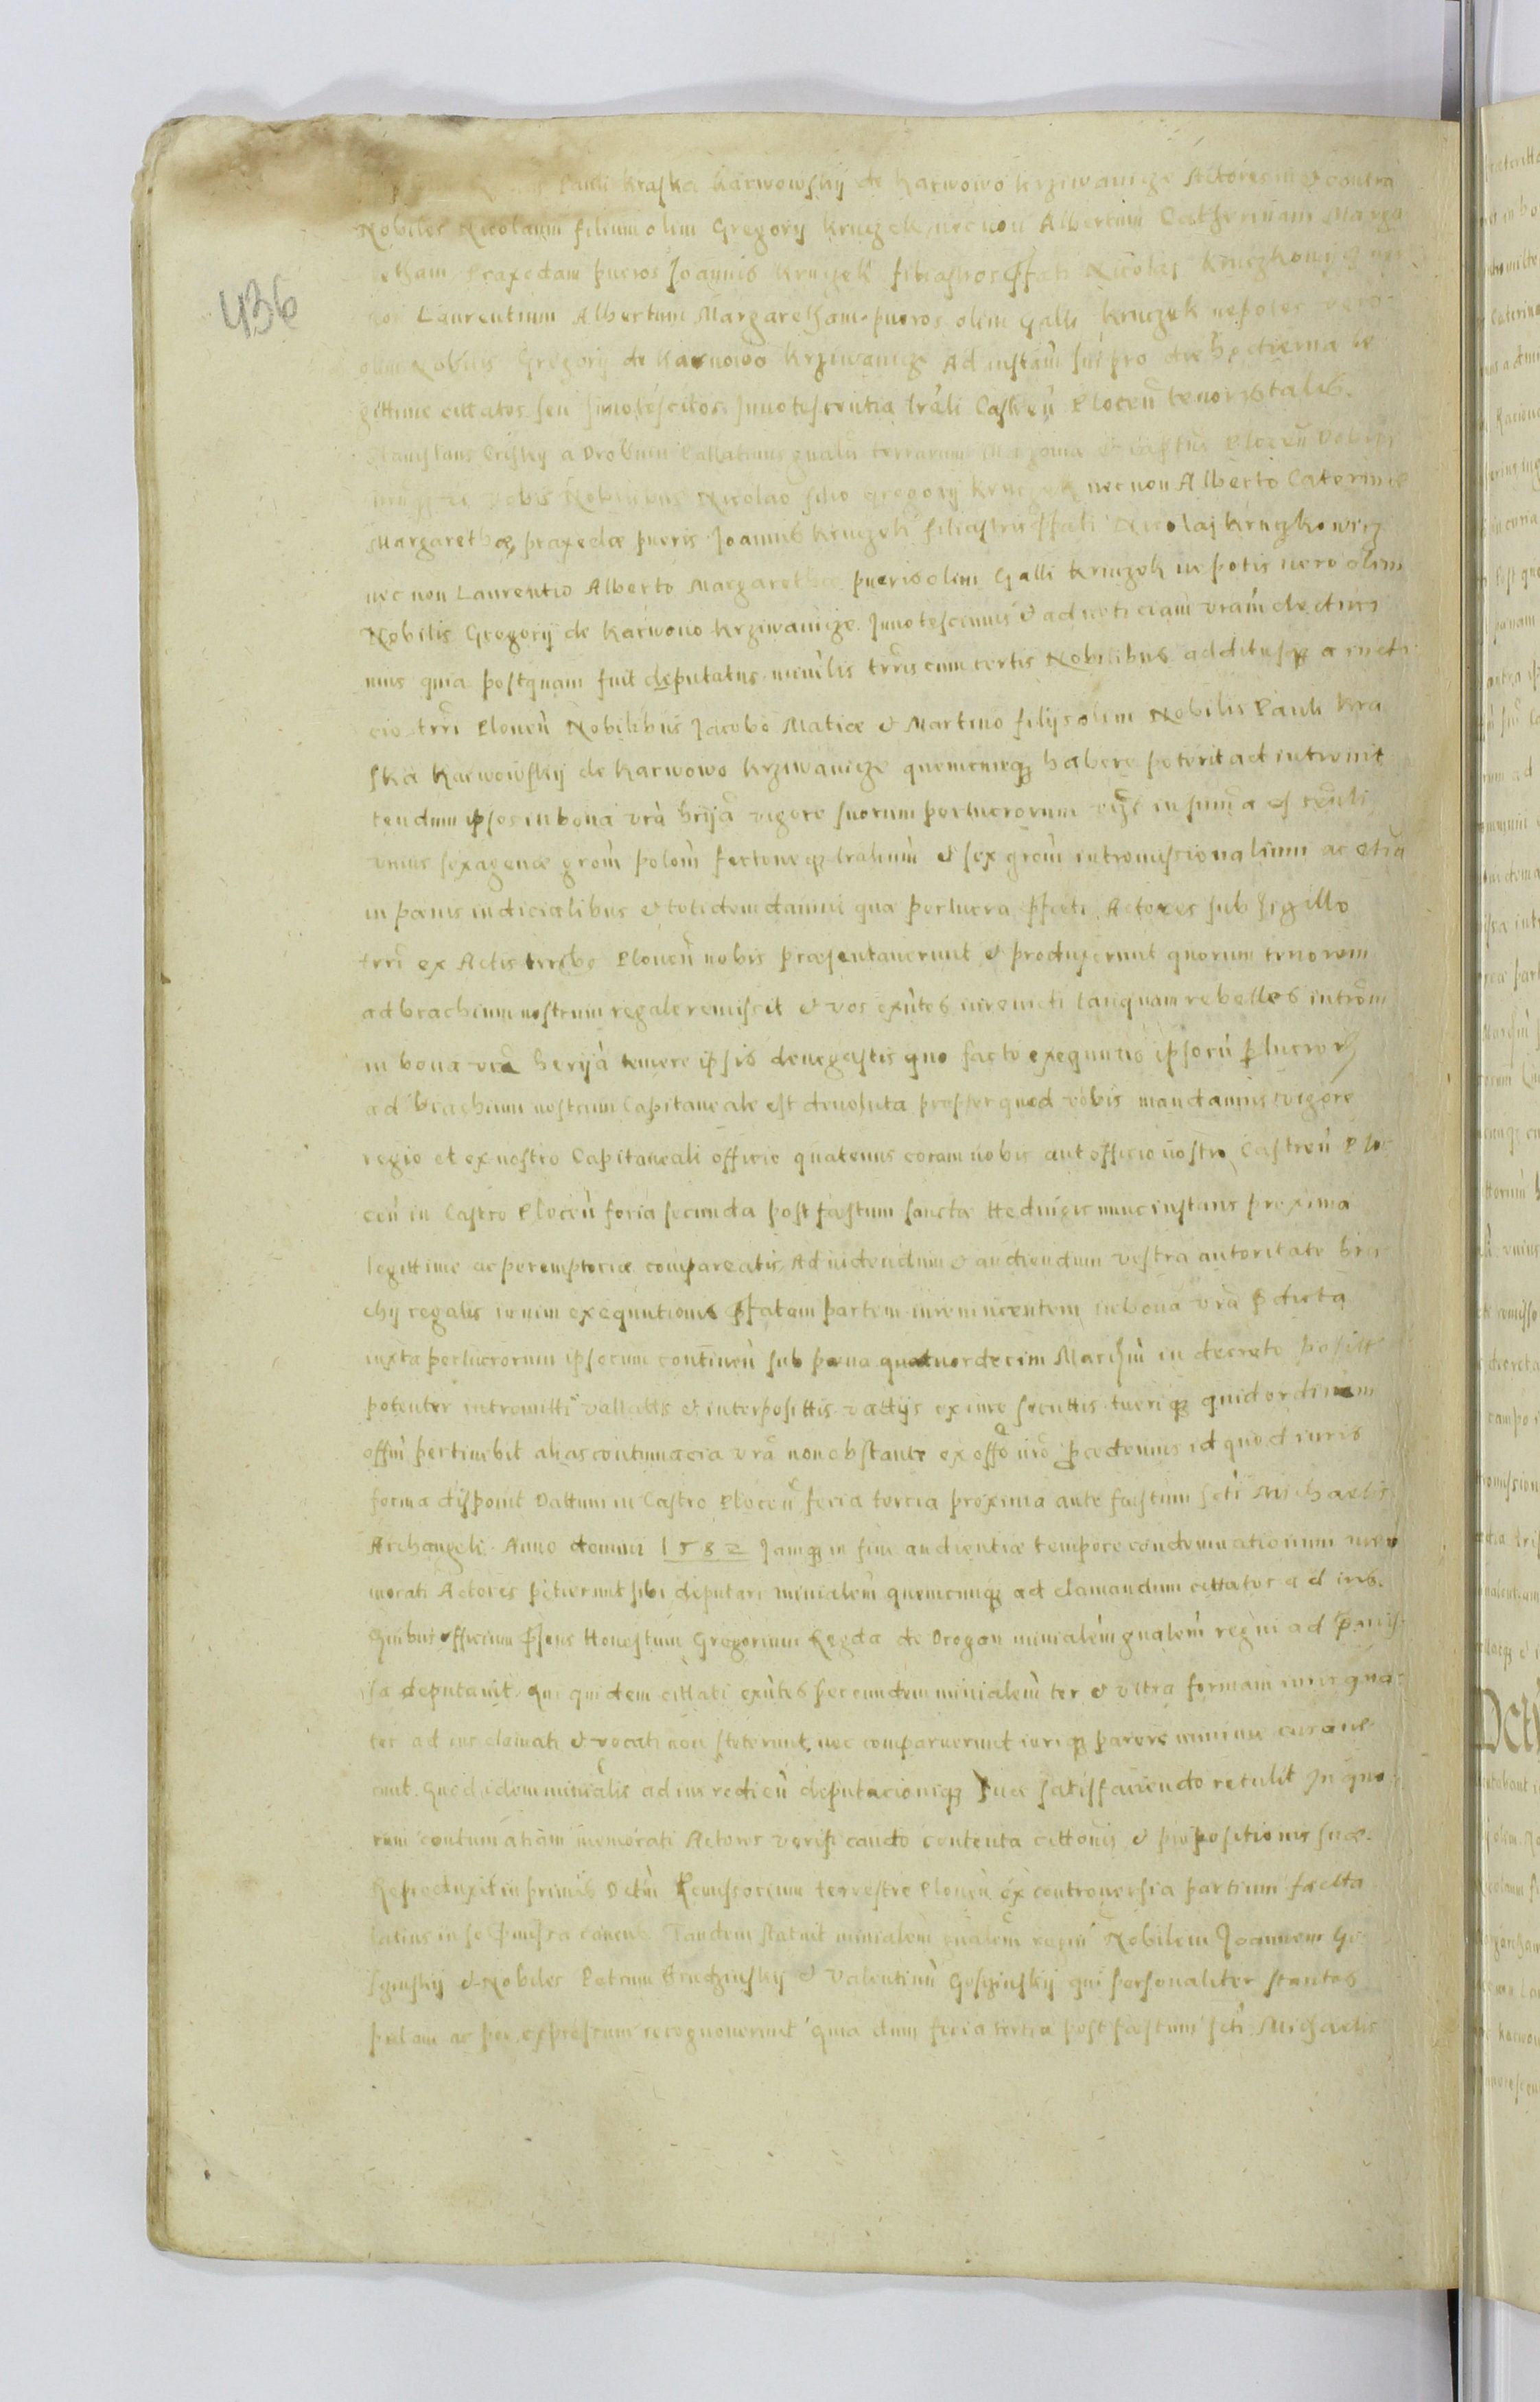 436
Pauli Kraska Karwowskij de Karwowo Krziwanicze Actores in et contra
Nobiles Nicolaum filium olim Gregorij Kruczek, nec non Albertum Catherinam Marga
retham Praxedam pueros Joannis Kruczek filiastros pfati Nicolaj Kruczkowicz nec
non Laurentium Albertum Margaretham pueros olim Galli Kruczek nepotes vero
olim Nobilis Gregorij de Karwowo Krziwanicze Ad instam sui pro die hodierna le
gittime cittatos seu innotescitos Innotescentia lrali Castren Plocen tenoris talis.
Stanislaus Crisky a Drobnin Pallatinus gnalis terrarum Mazoviæ Plocen Dobrzi
vobis Nobilibus Nicolao filio Gregorij Kruczek nec non Alberto Caterinæ
Margarethæ, praxedæ pueris Joannis Kruczek filiastris pfati Nicolaj Kruczkowicz
nec non Laurentio Alberto Margaretha pueris olim Galli Kruczek nepotis vero olim
Nobilis Gregorij de Karwowo Krziwanicze. Innotescimus et ad noticiam vram deduci
mus quia postquam fuit deputatus minilis trris cum certis Nobilibus additusqz a iudi
cio trri Plonen Nobilibus Jacobo Matiæ et Martino filijs olim Nobilis Pauli Kra
ska Karwowskij de Karwowo Krziwanicze quemcunqz habere poterit ad intromit
tendum ipsos in bona vra hrija vigore suorum perlucrorum in summa
vnius sexagenæ grom polom fertoneqz lralium et sex grom intromissionalium ac etia
in pœnis iudicialibus et totidem damni qua perlucra pfati Actores sub sigillo
trri ex Actis trribs Plonen nobis præsentaverunt et produxerunt quorum tenorem
ad brachium nostrum regale remissit et vos exntes iurevicti tanquam rebelles introm
in bona vra herija tenere ipsis denegastis quo facto exequutio ipsoru plucror
ad brachium nostrum Capitaneale est devoluta propter quod vobis mandamus vigore
regio et ex nostro Capitaneali officio quatenus coram nobis aut officio nostro Castren Plo
cen in Castro Plocen feria secunda post fæstum sanctæ Heduigis nunc instans proxima
legittime ac peremptoriæ compareatis Ad videndum et audiendum vestra autoritate bra
chij regalis iurium exequutionis pfatam partem iurevincentem in bona vra pdicta
iuxta perlucrorum ipsorum continen sub pæna quatuordecim Marchiu in decreto positt
potenter intromitti vallatts et interposittis vadijs ex iure secuttis tueriqz quid ordinem
offm pertinebit alias contumacia vra non obstante ex offo nro pcedemus id quod iuris
forma disponit Dattum in Castro Plocen feria tercia proxima ante fæstum scti Michaelis
Archangeli. Anno domini 1582 Jamqz in fine audientiæ tempore condemnationum me
morati Actores petierunt sibi deputari minialem quemcunqz ad clamandum cittatos ad ius.
Quibus officium psens Honestum Gregorium Regda de Drogan minialem gnalem regni ad pmis
sa deputavit. Qui quidem cittati exntes per eundem minialem ter et vltra formam iuris qua
ter ad ius clamati et vocati non steterunt, nec comparuerunt iuriqz parere minime curave
runt. Quod idem minialis ad ius rediens deputacioniqz suæ satisfaciendo retulit In quo
rum contumatiam memorati Actores verificando contenta cittonis et propositionis suæ.
Reproduxit in primis Dctm Remissorium terrestre Plonen ex controversia partium factta
latius in se pmissa conen Tandem statuit minialem gnalem regni Nobilem Joannem Go
szinskij et Nobiles Petrum Brudzinskij et Valentinu Goszinskij qui personaliter stantes
palam ac per expressum recognoverunt quia dum feria tertia post fæstum scti Michaelis